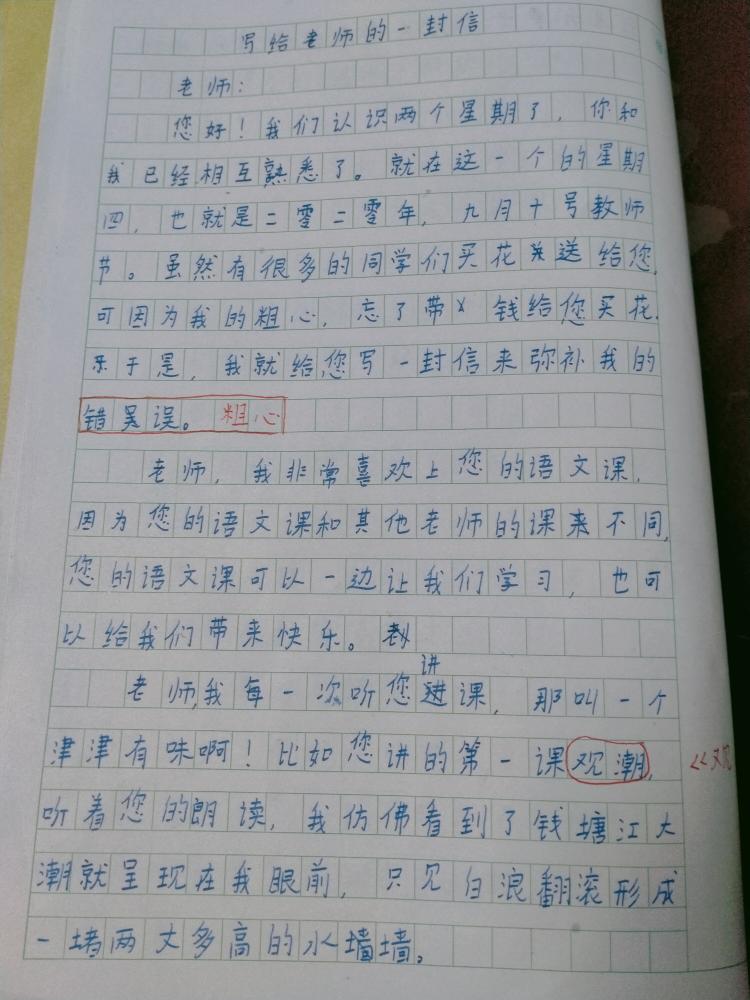 写给老师的一封信
老师：
您好！我们认识两个星期了，你和
我已经相互熟悉了。就在这一个的星期
四，也就是二零二零年，九月十号教师
节。虽然有很多的同学们买花送给您，
可因为我的粗心，忘了带钱给您买花，
于是，我就给您写一封信来弥补我的
错误。粗心
老师，我非常喜欢上您的语文课，
因为您的语文课和其他老师的课来不同，
您的语文课可以一边让我们学习，也可
以给我们带来快乐。
讲
老师，我每一次听您课，那叫一个
津津有味啊！比如您讲的第一课观潮，
《观
听着您的朗读，我仿佛看到了钱塘江大
潮就呈现在我眼前，只见白浪翻滚形成
一堵两丈多高的水墙。